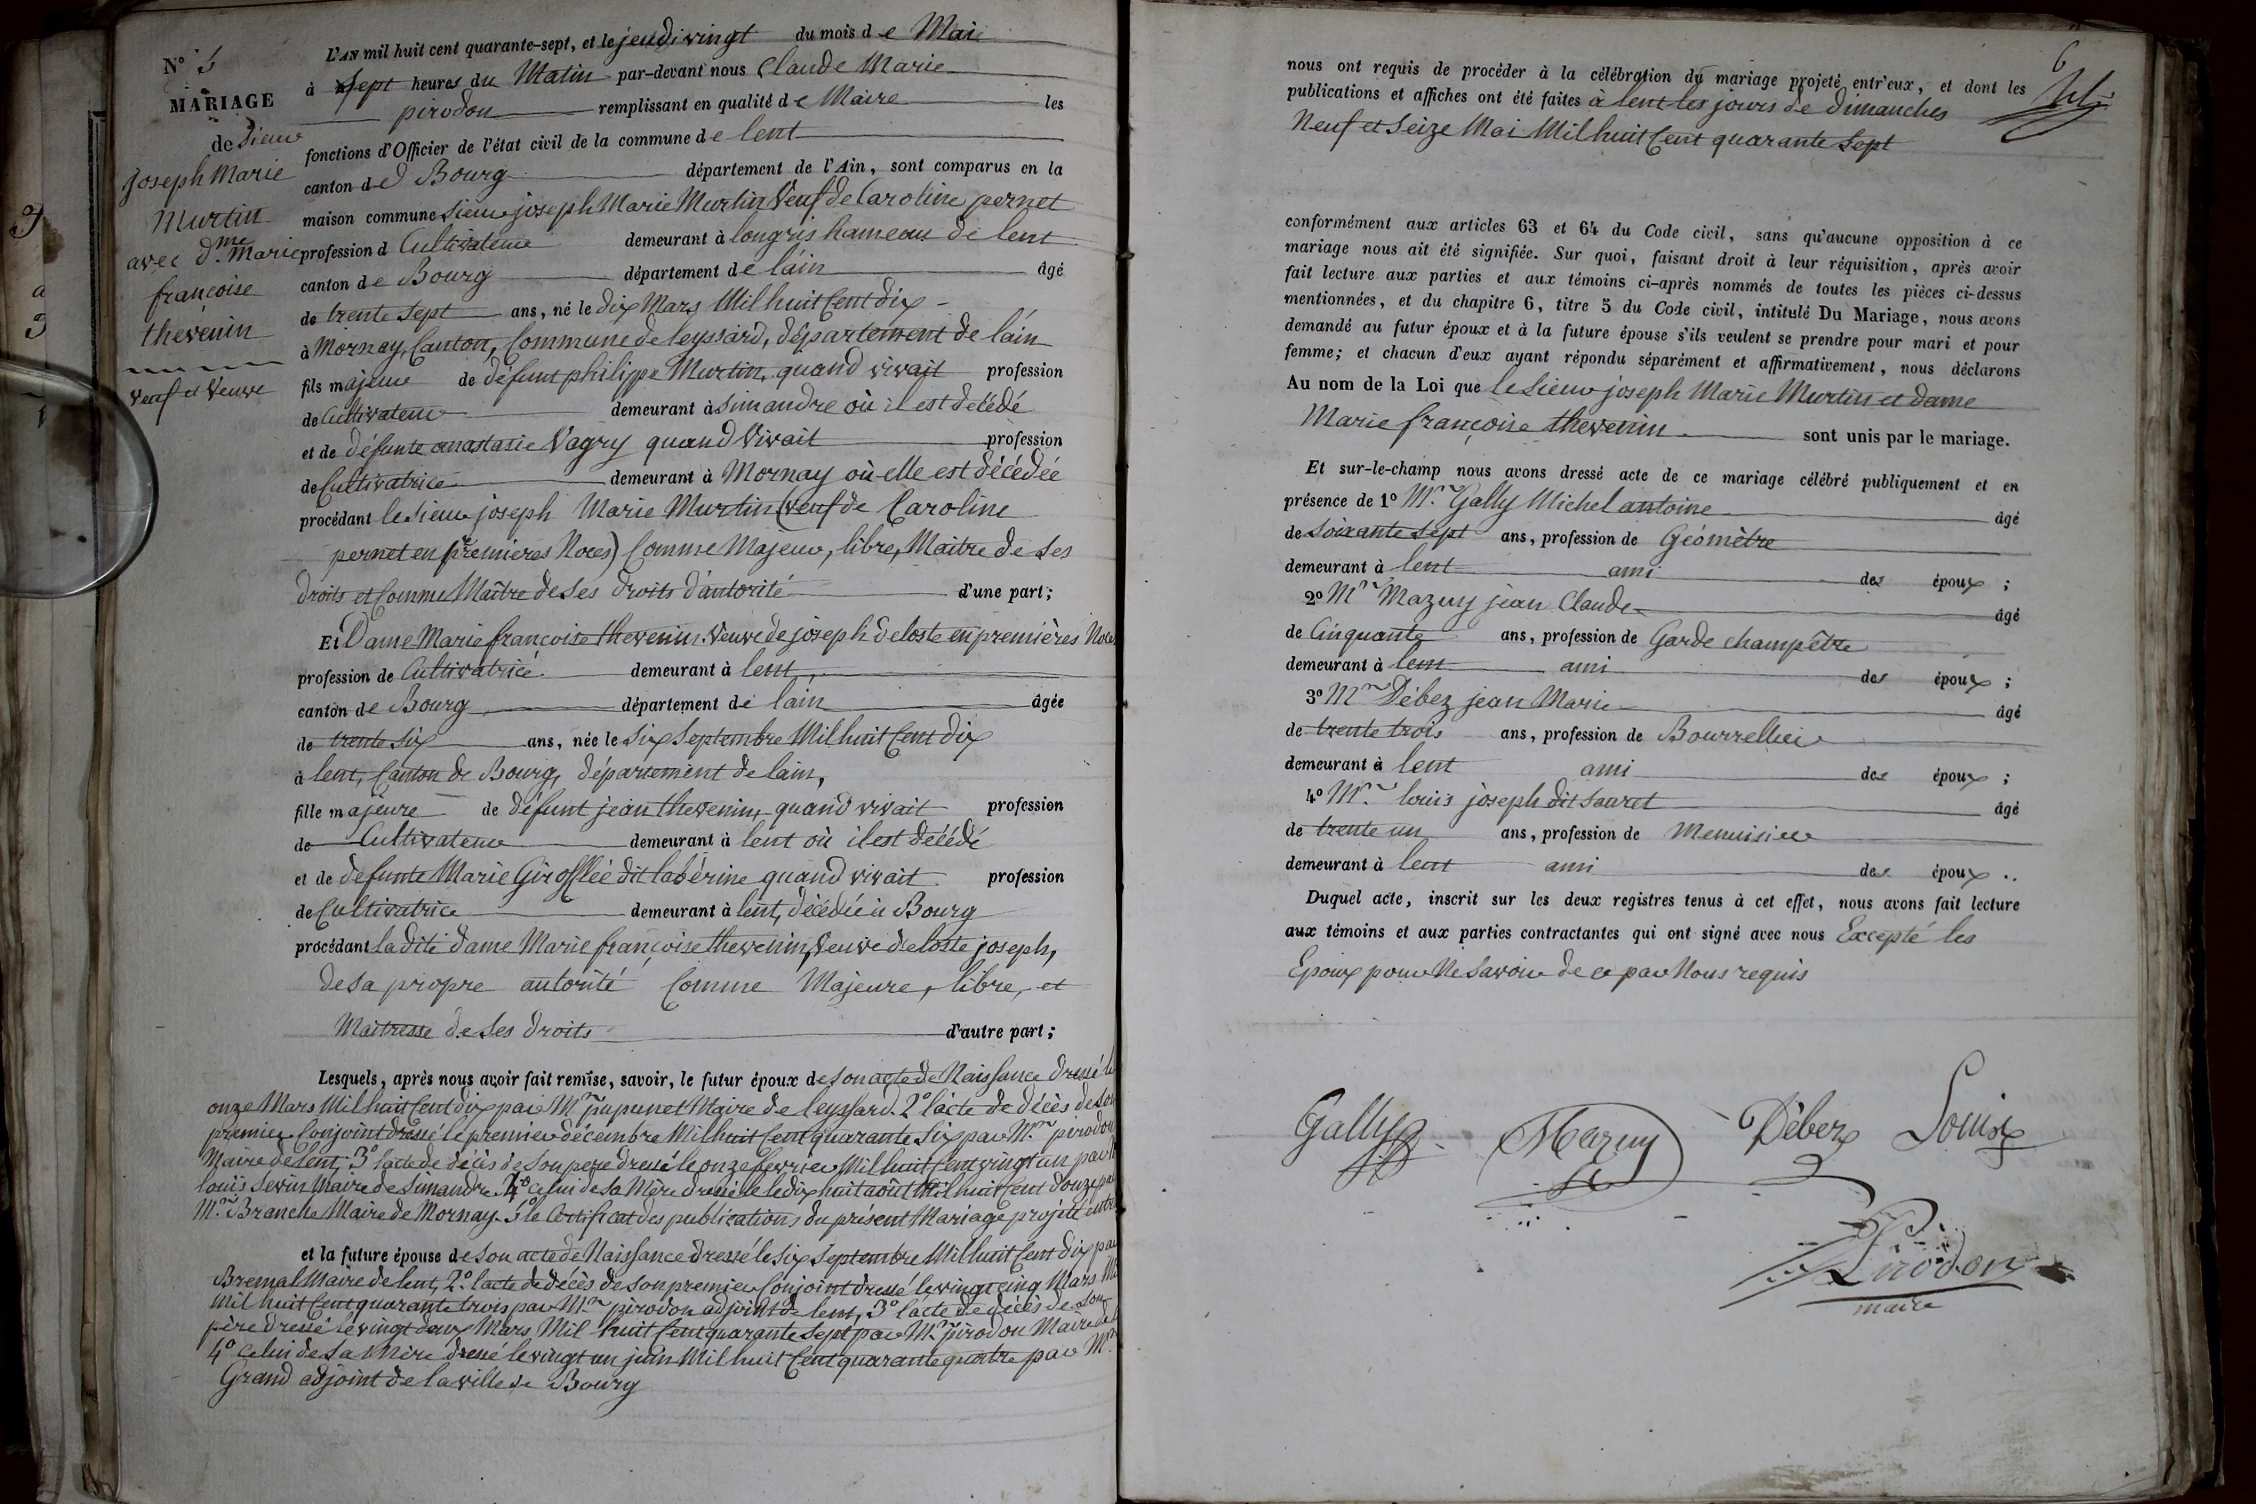 N° 5
MARIAGE
de Sieur
joseph Marie
Murtin
avec d.me Marie
françoise
thevenin
veuf et veuve
L'AN mil huit cent quarante-sept, et le jeudi vingt du mois de Mai
à Sept heures du Matin par-devant nous Claude Marie
pirodon remplissant en qualité de Maire les
fonctions d'Officier de l'état civil de la commune de lent
canton de Bourg département de l'Ain, sont comparus en la
maison commune Sieur joseph Marie Murtin Veuf de Caroline pernet
profession d Cultivateur demeurant à longris hameau de lent
canton de Bourg département de láin âgé
de trente Sept ans, né le dix Mars Mil huit Cent dix
à Mornay, Canton, Commune de leyssard, département de láin
fils majeur de défunt philippe Murtin, quand vivait profession
de Cultivateur demeurant à Simandre où il est décédé
et de défunte anastasie Vagry quand Vivait profession
de Cultivatrice demeurant à Mornay où elle est décédée
procédant le Sieur joseph Marie Murtin (veuf de Caroline
pernet en premieres Noces) Comme Majeur, libre, Maitre de Ses
droits et Comme Maître de Ses droits d'autorité d'une part;
Et Dame Marie françoise thevenin Veuve de joseph deloste en premières Noces
profession de Cultivatrice demeurant à lent,
canton de Bourg département de láin âgée
de trente Six ans, née le Six Septembre Mil huit Cent dix
à lent, Canton de Bourg, département de lain,
fille majeure de défunt jean thevenin, quand vivait profession
de Cultivateur demeurant à lent où il est décédé
et de defunte Marie Girofflée dit labérine quand vivait profession
de Cultivatrice demeurant à lent, décédée à Bourg
procédant ladite dame Marie françoise thevenin, Veuve deloste joseph,
de sa propre autorité Comme Majeure, libre, et
Maitresse de Ses droits d'autre part;
Lesquels, après nous avoir fait remise, savoir, le futur époux de Son acte de Naissance dressé le
onze Mars Mil huit Cent dix par M.r pupunet Maire de leyssard. 2° lácte de décès de Son
premier Conjoint dressé le premier décembre Mil huit Cent quarante Six par M.r pirodon
Maire de lent, 3° lacte de décès de Son pere dressé le onze fevrier Mil huit Cent vingt un par
louis Sevin Maire de Simandre. 4° Celui de Sa Mère dressé le dix huit août Mil huit Cent douze par
M.r Branche Maire de Mornay. 5° le Certificat des publications du présent Mariage projeté entre
et la future épouse de Son acte de Naissance dressé le Six Septembre Mil huit Cent dix par
Bremal Maire de lent, 2° lacte de décès de Son premier Conjoint dressé le vingt cinq Mars
Mil huit Cent quarante trois par M.r pirodon adjoint de lent, 3° lácte de décès de Son
père dressé le vingt deux Mars Mil huit Cent quarante Sept par M.r pirodon Maire de
4° Celui de Sa Mère dressé le vingt un juin Mil huit Cent quarante quatre par M.r
Grand adjoint de la ville de Bourg
6
nous ont requis de procéder à la célébration du mariage projeté entr'eux, et dont les
publications et affiches ont été faites à lent les jours de dimanches
Neuf et Seize Mai Mil huit Cent quarante Sept
conformément aux articles 63 et 64 du Code civil, sans qu'aucune opposition à ce
mariage nous ait été signifiée. Sur quoi, faisant droit à leur réquisition, après avoir
fait lecture aux parties et aux témoins ci-après nommés de toutes les pièces ci-dessus
mentionnées, et du chapitre 6, titre 5 du Code civil, intitulé Du Mariage, nous avons
demandé au futur époux et à la future épouse s'ils veulent se prendre pour mari et pour
femme; et chacun d'eux ayant répondu séparément et affirmativement, nous déclarons
Au nom de la Loi que le Sieur joseph Marie Murtin et dame
Marie françoise thevenin sont unis par le mariage.
Et sur-le-champ nous avons dressé acte de ce mariage célébré publiquement et en
présence de 1° M.r Gally Michel antoine âgé
de Soixante Sept ans, profession de Géomètre
demeurant à lent ami des époux ;
2° M.r Mazuy jean Claude âgé
de Cinquante ans, profession de Garde champêtre
demeurant à lent ami des époux ;
3° M.r Débez jean Marie âgé
de trente trois ans, profession de Bourrellier
demeurant à lent ami des époux ;
4° M.r louis joseph dit Sauret âgé
de trente un ans, profession de Menuisier
demeurant à lent ami des époux ..
Duquel acte, inscrit sur les deux registres tenus à cet effet, nous avons fait lecture
aux témoins et aux parties contractantes qui ont signé avec nous Excepté les
Epoux pour Ne Savoir de ce par Nous requis
Gally Mazuy Débez Louis
Pirodon
maire